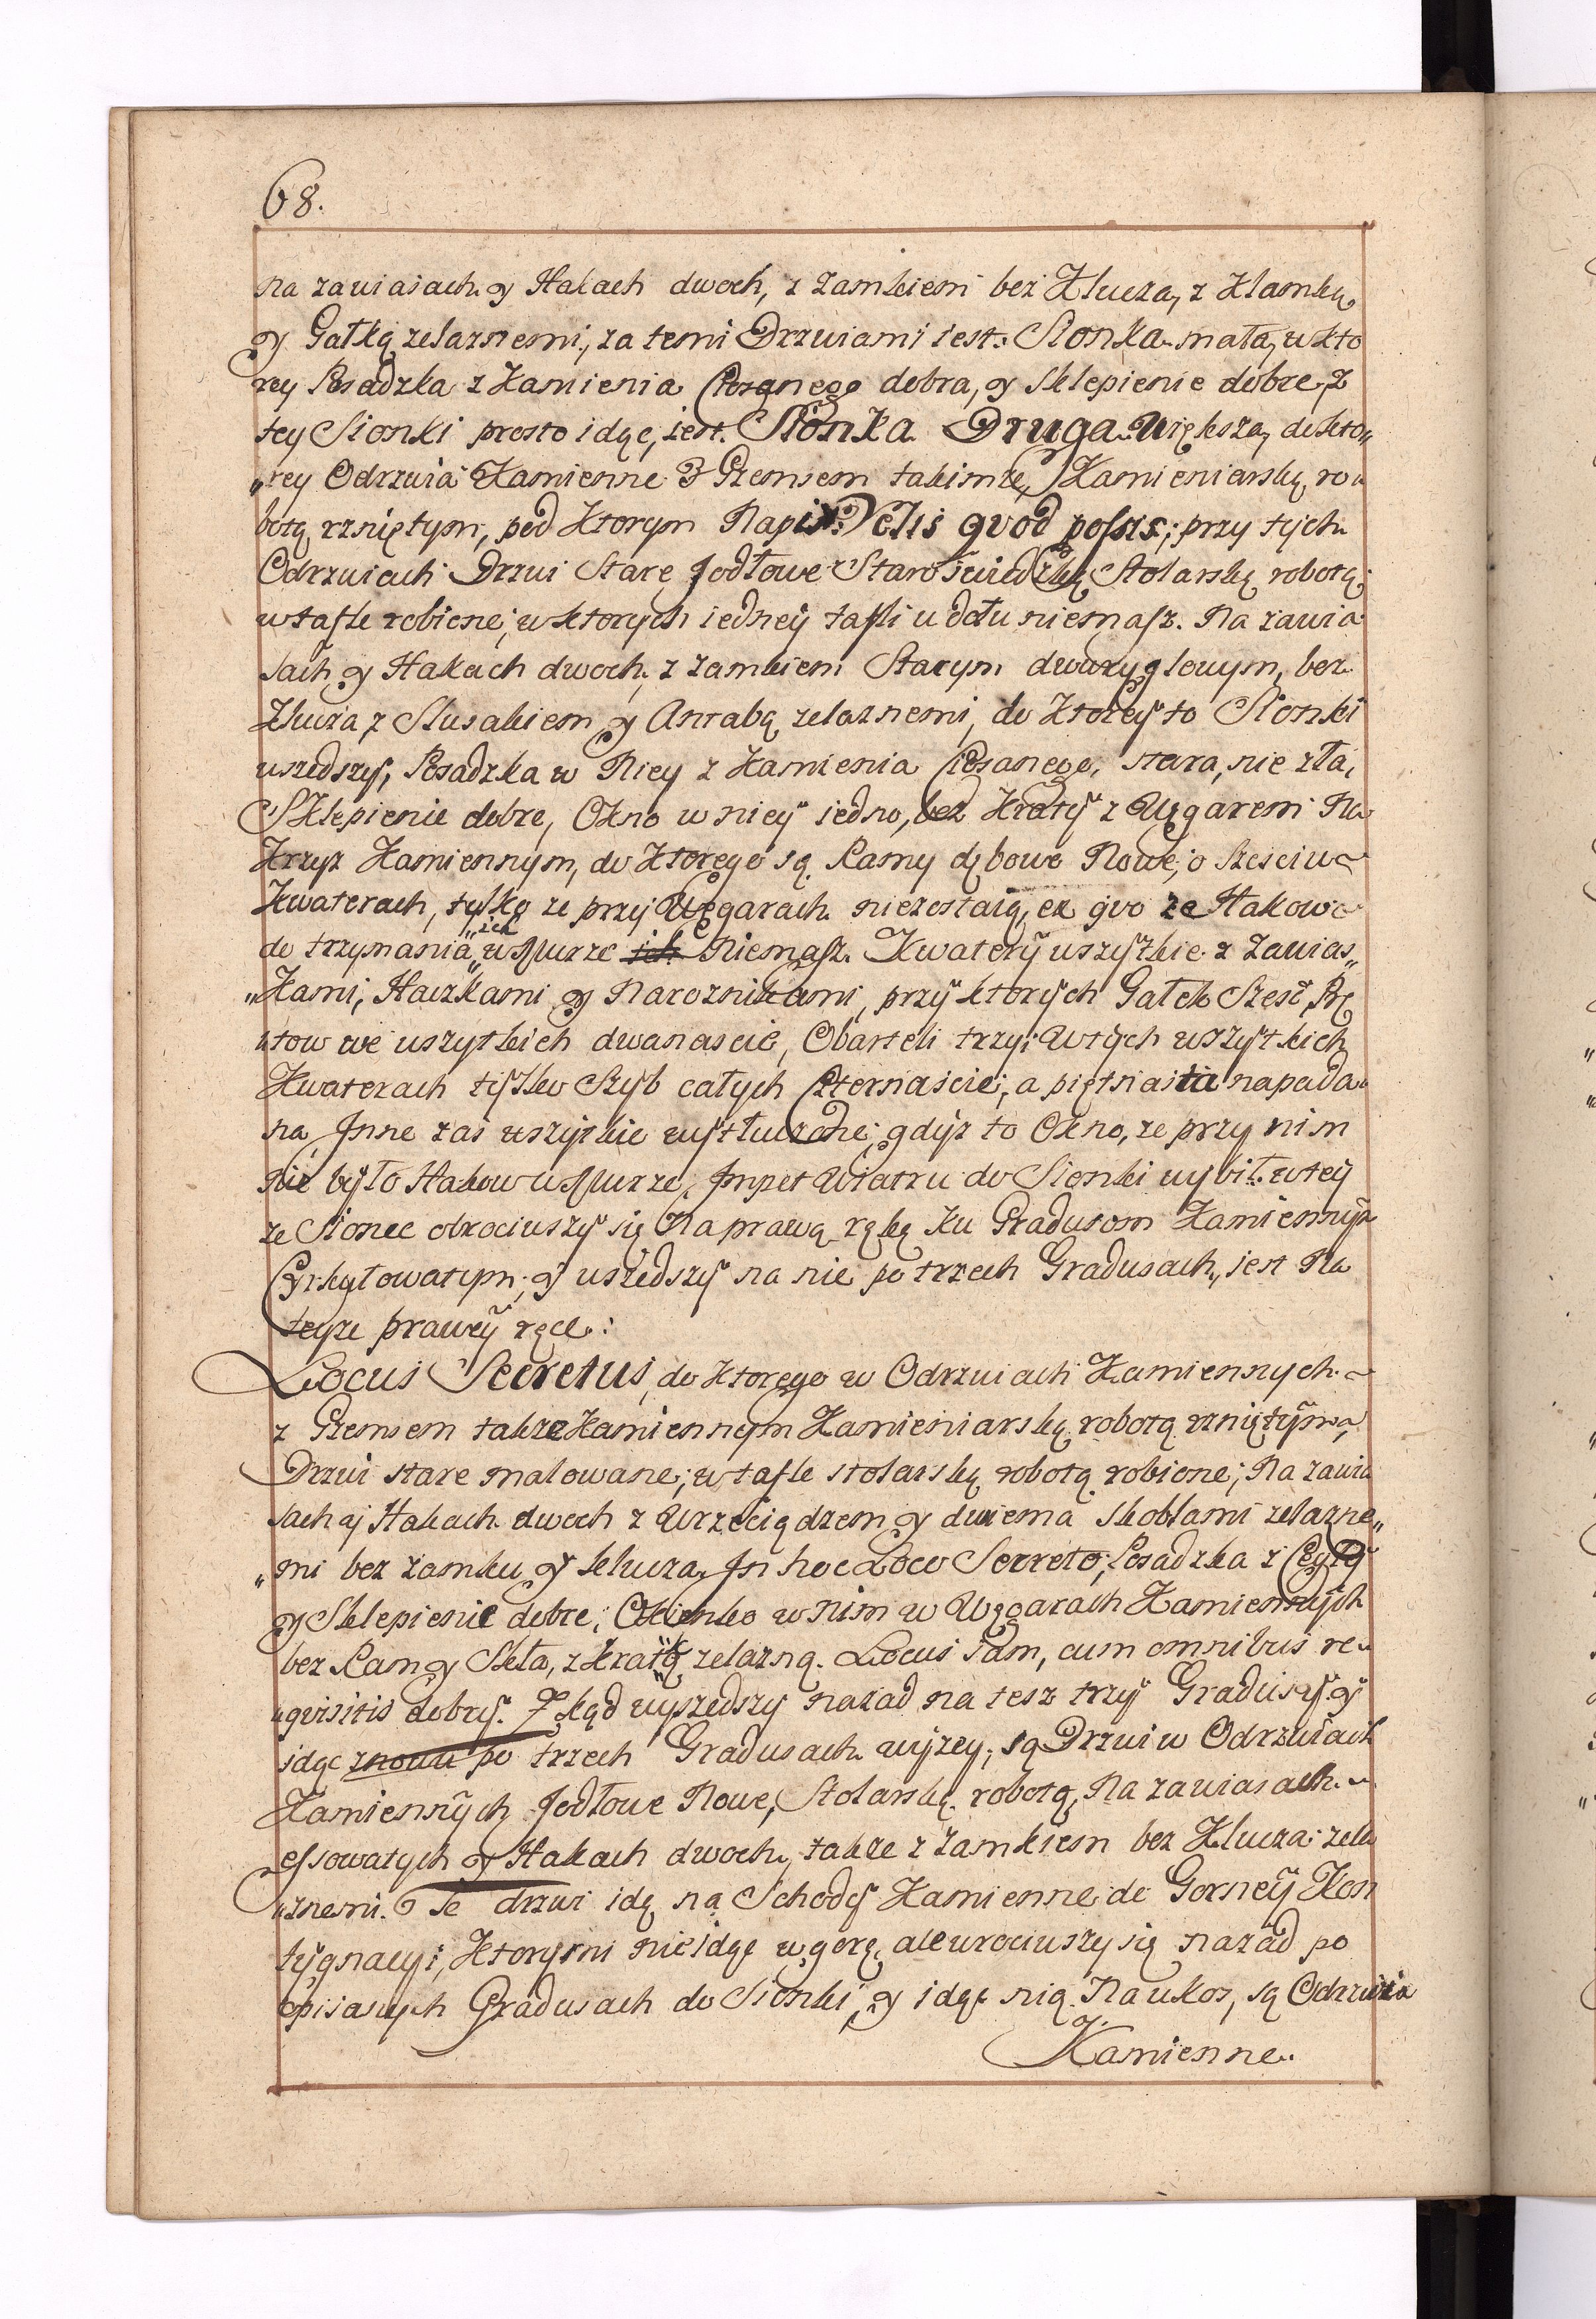 68.
na zawiasach y Hakach dwoch, z Zamkiem bez Klucza, z Klamką
y Gałką zelaznemi, za temi Drzwiami iest: Sionka mała, w kto
rey Posadzka z Kamienia Ciosanego dobra, y Sklepienie dobre, z
tey Sionki prosto idąc, iest. Sionka Druga Większa, do kto„
„rey Odrzwia Kamienne z Gzemsem takimże, Kamieniarską ro„
botą rzniętym, pod Ktorym Napis: Velis qvod possis; przy tych
Odrzwiach Drzwi Stare Jodłowe Staroswiedzką Stolarską robotą
w tafle robione; w ktorych iedney tafli u dołu niemasz. Na zawia
sach y Hakach dwoch, z zamkiem Starym dwuryglowym, bez
Klucza, z Slusakiem y Antabą zelaznemi, do Ktorey to Sionki
wszedszy, Posadzka w Niey z Kamienia Ciosanego, stara, nie zła,
Sklepienie dobre, Okno w niey iedno, bez Kraty z Węgarem Na
Krzyz Kamiennym, do Ktorego są Ramy dębowe Nowe, o Szesciu
Kwaterach, tylko ze przy Węgarach niezostaią, ex qvo ze Hakow
do trzymania „ich w Murze ich Niemasz. Kwatery wszyskie z Zawias„
„Kami, Haczkami y Naroznikami, przy ktorych Gałek Szesc, Prę
tow we wszytkich dwanascie, Obarteli trzy; w tych wszytkich
Kwaterach tylko Szyb całych Czternascie, a piętnasta napada„
na, Jnne zas wszyskie wytłuczone; gdyz to Okno, ze przy nim
nie było Hakow w Murze, Jmpet Wiatru do Sionki wybił. w tey
ze Sionce obrociwszy się Na prawą rękę Ku Gradusom Kamiennym
Cyrkułowatym, y wszedszy na nie po trzech Gradusach, iest Na
teyze prawey ręce:
Locus Secretus, do Ktorego w Odrzwiach Kamiennych
z Gzemsem takze Kamiennym Kamieniarską robotą rzniętym,
Drzwi stare malowane; w tafle stolarską robotą robione; Na zawia
sach y Hakach dwoch z Wrzeciądzem y dwiema skoblami zelazne„
„mi bez zamku y klucza. Jn hoc Loco Secreto, Posadzka z Cegły
y Sklepienie dobre, Okienko w nim w Węgarach Kamiennych
bez Ram y Skła, z Kratą zelazną. Locus sam, cum omnibus re„
„qvisitis dobry. Z kąd wyszedszy nazad na tesz trzy Gradusy y
idąc znowu po trzech Gradusach wyzey, są Drzwi w Odrzwiach
Kamiennych Jodłowe Nowe, Stolarską robotą, Na zawiasach
essowatych y Hakach dwoch, takze z zamkiem bez Klucza zela
„znemi. Te drzwi idą na Schody Kamienne do Gorney Kon
tygnacyi, Ktorymi nie idąc w gorę, ale wrociwszy się nazad po
opisanych Gradusach do Sionki, y idąc nią Na ukos, są Odrzwia
Kamienne